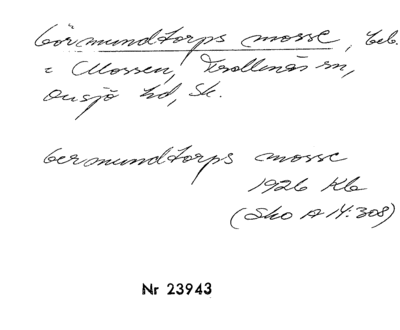 Görmundtorps mosse, beb.
= Mossen, Trollenäs sn,
Onsjö hd, Sk.
Germundtorps mosse
1926 Kb
(Sko A 14:308)
Nr 23943